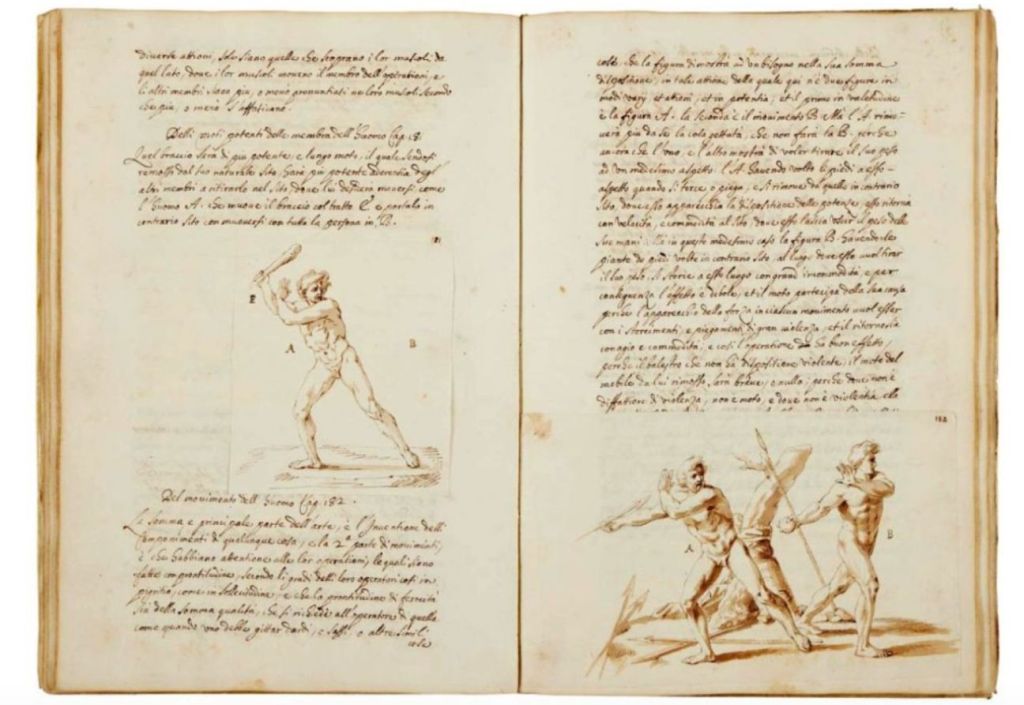 diverse attioni, solo siano quelle che sengrano i lor musculi da
quel lato, dove i lor musculi moveno il membro dell'operationi, e
li altri membri sieno più, o meno pronuntiati ne loro musculi secondo
che più, o meno s'affaticano.
Delli moti potenti delle membra dell'huomo Cap. 181
Quel braccio sarà di più potente, e lungo moto, il quale sendosi
remosso dal suo naturale sito, harà più potente aderentia degl'
altri membri a ritirarlo nel sito, dove lui desidera moversi come
l'huomo A. che muove il braccio col tratto E. e portalo in
contrario sito con muoversi con tutta la persona in B.
E
A
B
Del movimento dell'huomo Cap. 182.
La somma e principale parte dell'arte, è l'inventione delli
componimenti di qualunque cosa, e la 2ª parte di movimenti,
è che habbiano attentione alle lor operationi, le quali siano
fatte con prontitudine, secondo li gradi delli loro operatori così in
pigritia, come in sollecitudine, e che la prontitudine di ferocità
sia della somma qualità, che si richiede all'operatore di quella
come quando uno debbe gittar dardi, o sassi, o altre simili
cose
cose, che la figura dimostra sua somma
dispositione, in tale attione della quale qui n'è due figure in
modi vary et attioni, et in potentia, et il primo in valetudine
è la figura A. la seconda è il movimento B. Mà l'A rimo-
verà più da sè la cosa gettata, che non farà la B. perche
ancora che l'uno, e l'altro mostrà di voler tirare il suo peso
ad un medesimo aspetto: l'A. havendo volto li piedi a esso
aspetto quando si torce, o piega, e si rimove da quello in contrario
sito, dove esso apparecchia la dispositione della potentia, esso ritorna
con velocità, e commodità al sito, dove esso lascia uscir il peso delle
sue mani. Mà in questo medesimo caso la figura B. havendo le
piante de piedi volte in contrario sito, al luogo dove esso vuol tirar
il suo peso, si storce a esso luogo con grand'incommodità, e per
conseguenza l'effetto è debole, et il moto partecipa della sua causa
perche l'apparecchio della forza in ciascun movimento vuol esser
con istorcimenti, e piegamenti di gran violenza, et il ritorno sia
con agio e commodità, e così l'operatione ha buon effetto,
perche il balestro che non ha dispositione violente, il moto del
mobile da lui rimosso sarà breve, o nullo; perche dove non è
disfattione di violenza, non è moto, e dove non è violentia, ella
182
A
B